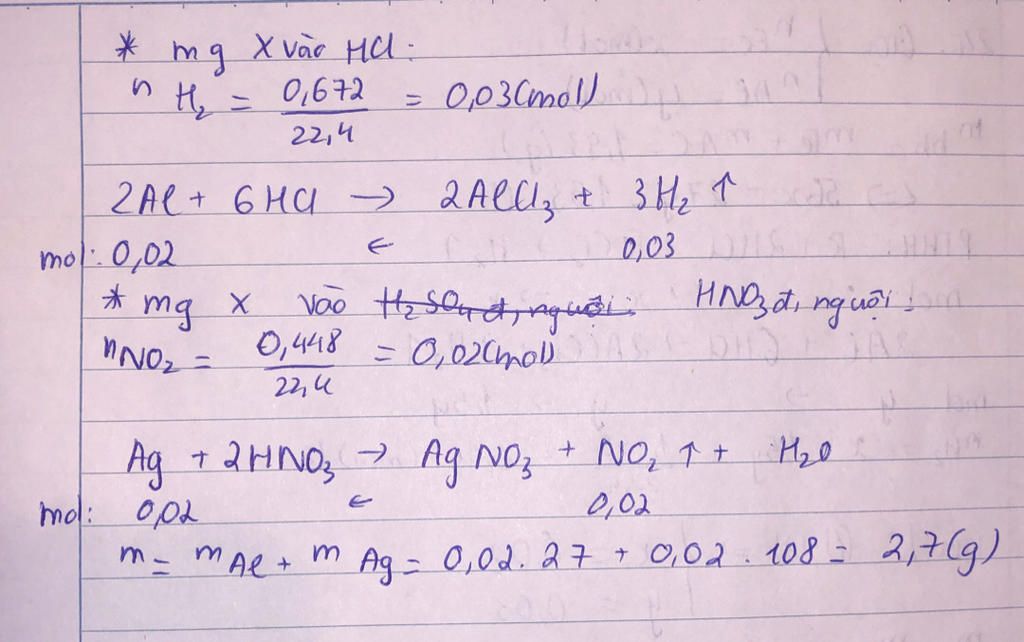 * mg X vào HCl:
n H₂ = 0,672/22,4 = 0,03(mol)
2Al + 6HCl → 2AlCl₃ + 3H₂ ↑
mol: 0,02 ← 0,03
* mg X vào H₂SO₄ đ, nguội: HNO₃ đ, nguội:
nNO₂ = 0,448/22,4 = 0,02(mol)
Ag + 2HNO₃ → AgNO₃ + NO₂ ↑ + H₂O
mol: 0,02 ← 0,02
m = mAl + mAg = 0,02.27 + 0,02.108 = 2,7(g)